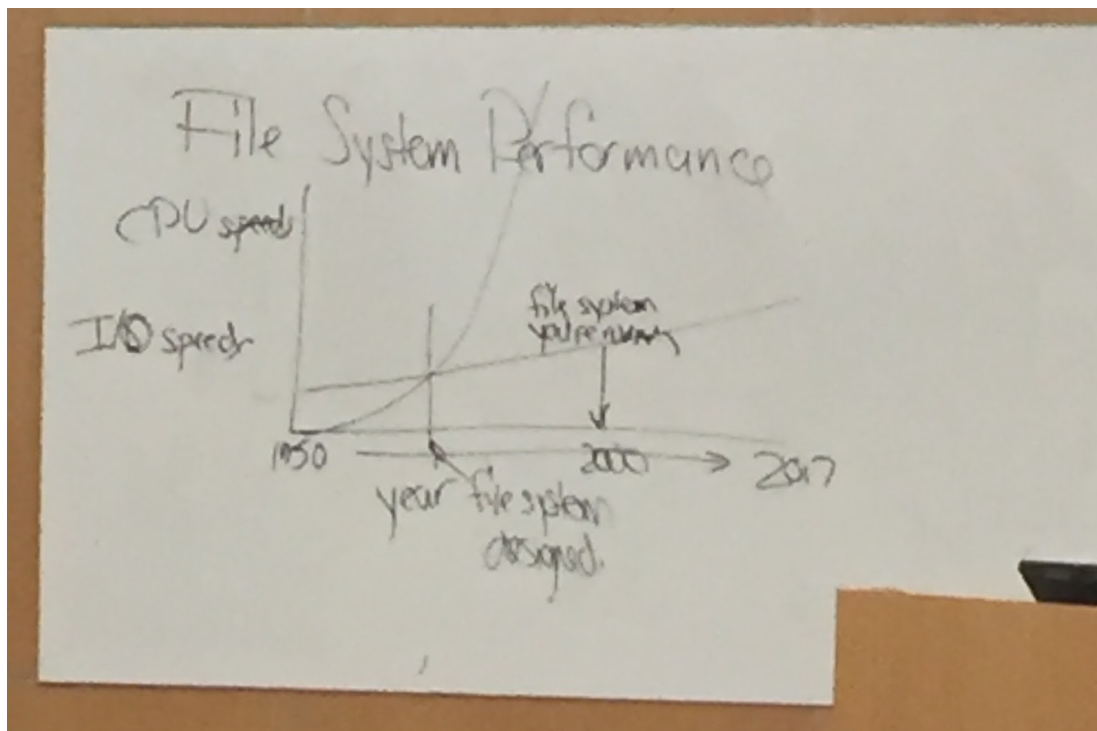 File System Performance
CPU speeds
I/O speeds
file system
you're running
1950
2000
2017
year file system
designed.